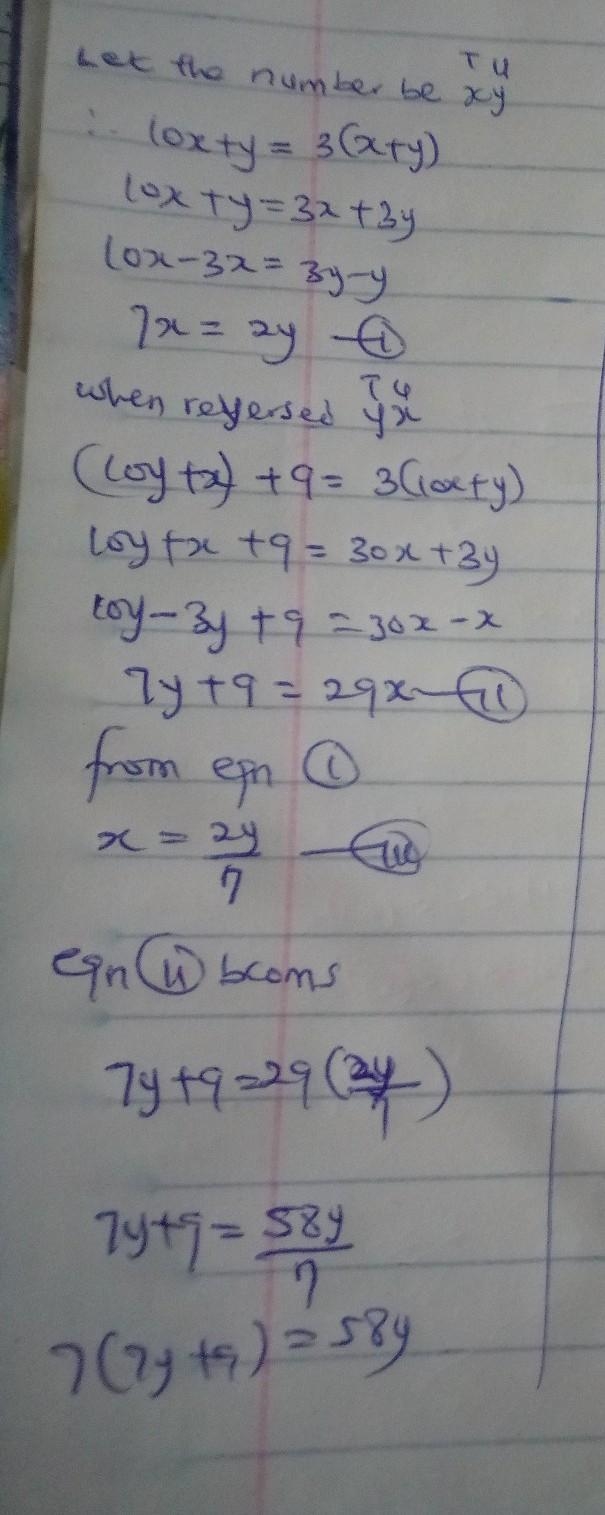 Let the number be T U
xy
∴ 10x+y = 3(x+y)
10x+y=3x+3y
10x-3x= 3y-y
7x = 2y - (i)
when reversed T U
yx
(10y+x) +9= 3(10x+y)
10y+x +9 = 30x+3y
10y-3y +9 =30x-x
7y+9 = 29x - (ii)
from eqn (i)
x = 2y/7 - (iii)
eqn (ii) bcoms
7y+9=29(2y/7)
7y+9= 58y/7
7(7y+9)=58y